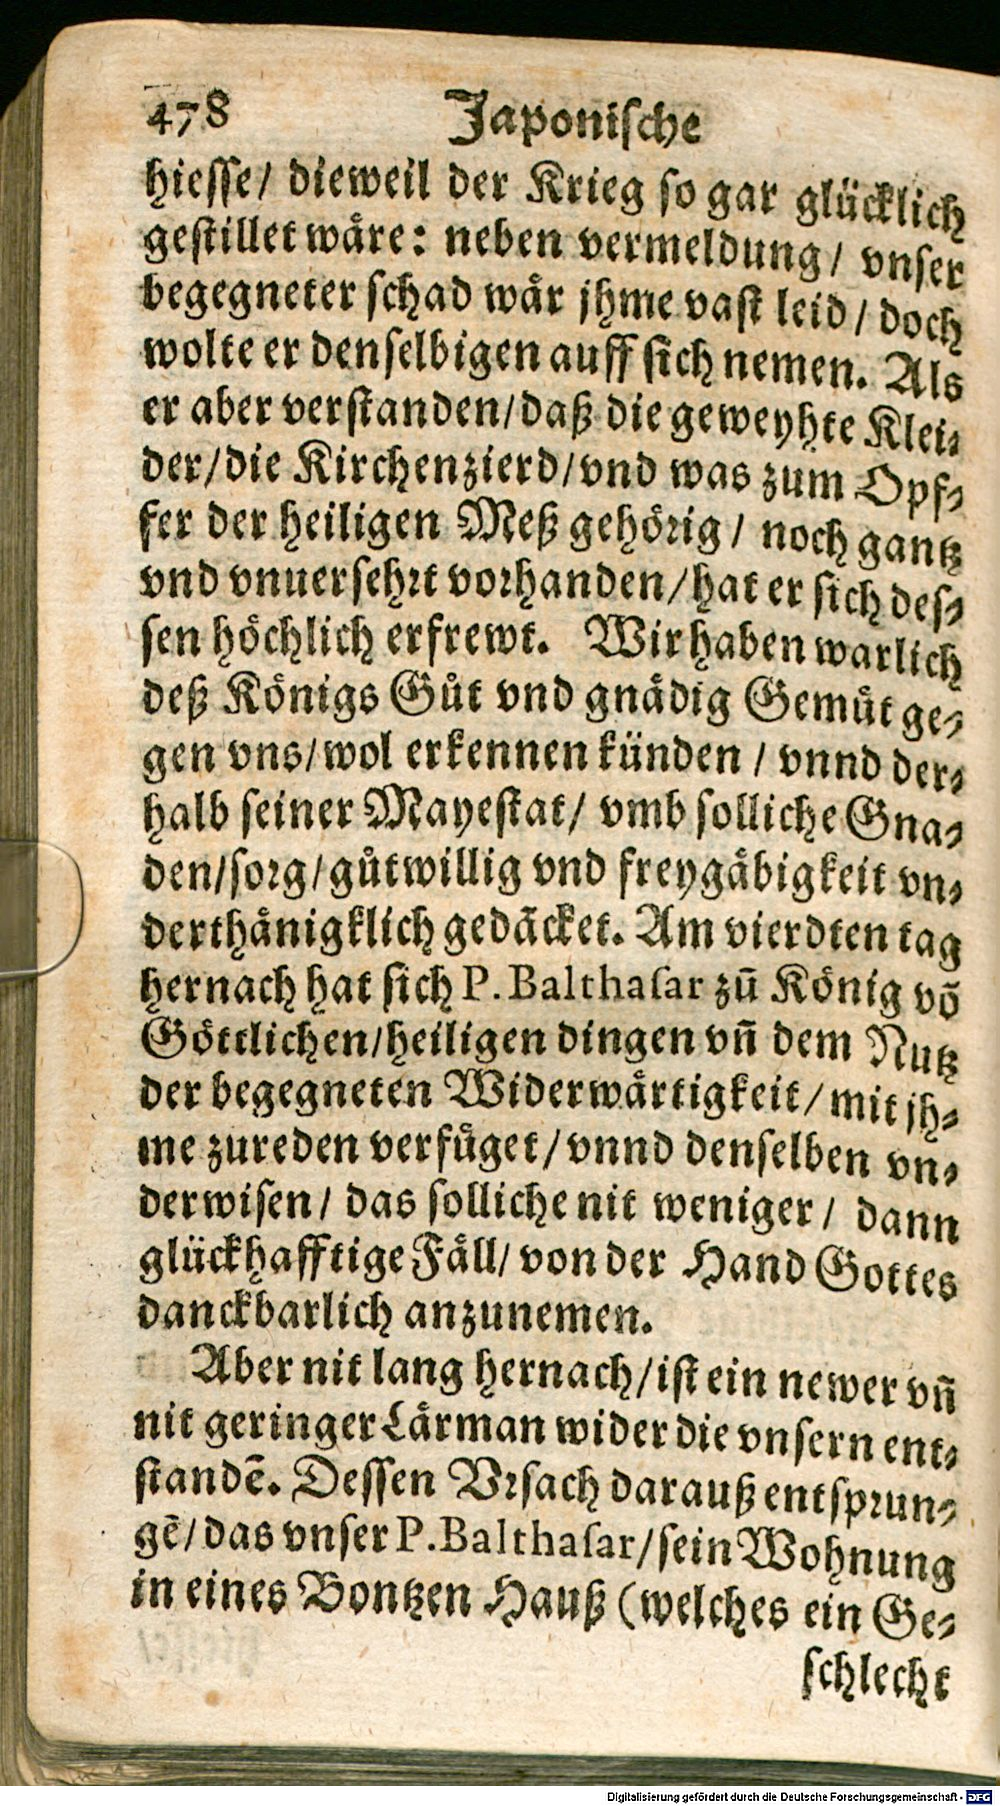 478 Japonische
hiesse/ dieweil der Krieg so gar glücklich
gestillet wäre: neben vermeldung/ vnser
begegneter schad wär jhme vast leid/ doch
wolte er denselbigen auff sich nemen. Als
er aber verstanden/daß die geweyhte Klei-
der/die Kirchenzierd/vnd was zum Opf-
fer der heiligen Meß gehörig/ noch gantz
vnd vnuersehrt vorhanden/hat er sich des-
sen höchlich erfrewt. Wir haben warlich
deß Königs Gůt vnd gnädig Gemůt ge-
gen vns/wol erkennen künden / vnnd der-
halb seiner Mayestat/ vmb solliche Gna-
den/sorg/gůtwillig vnd freygäbigkeit vn-
derthänigklich gedãcket. Am vierdten tag
hernach hat sich P. Balthasar zũ König võ
Göttlichen/heiligen dingen vñ dem Nutz
der begegneten Widerwärtigkeit/ mit jh-
me zureden verfůget/ vnnd denselben vn-
derwisen/ das solliche nit weniger/ dann
glückhafftige Fäll/ von der Hand Gottes
danckbarlich anzunemen.
Aber nit lang hernach/ist ein newer vñ
nit geringer Lärman wider die vnsern ent-
standẽ. Dessen Vrsach darauß entsprun-
gẽ/das vnser P. Balthasar/sein Wohnung
in eines Bontzen Hauß (welches ein Ge-
schlecht
Digitalisierung gefördert durch die Deutsche Forschungsgemeinschaft - DFG